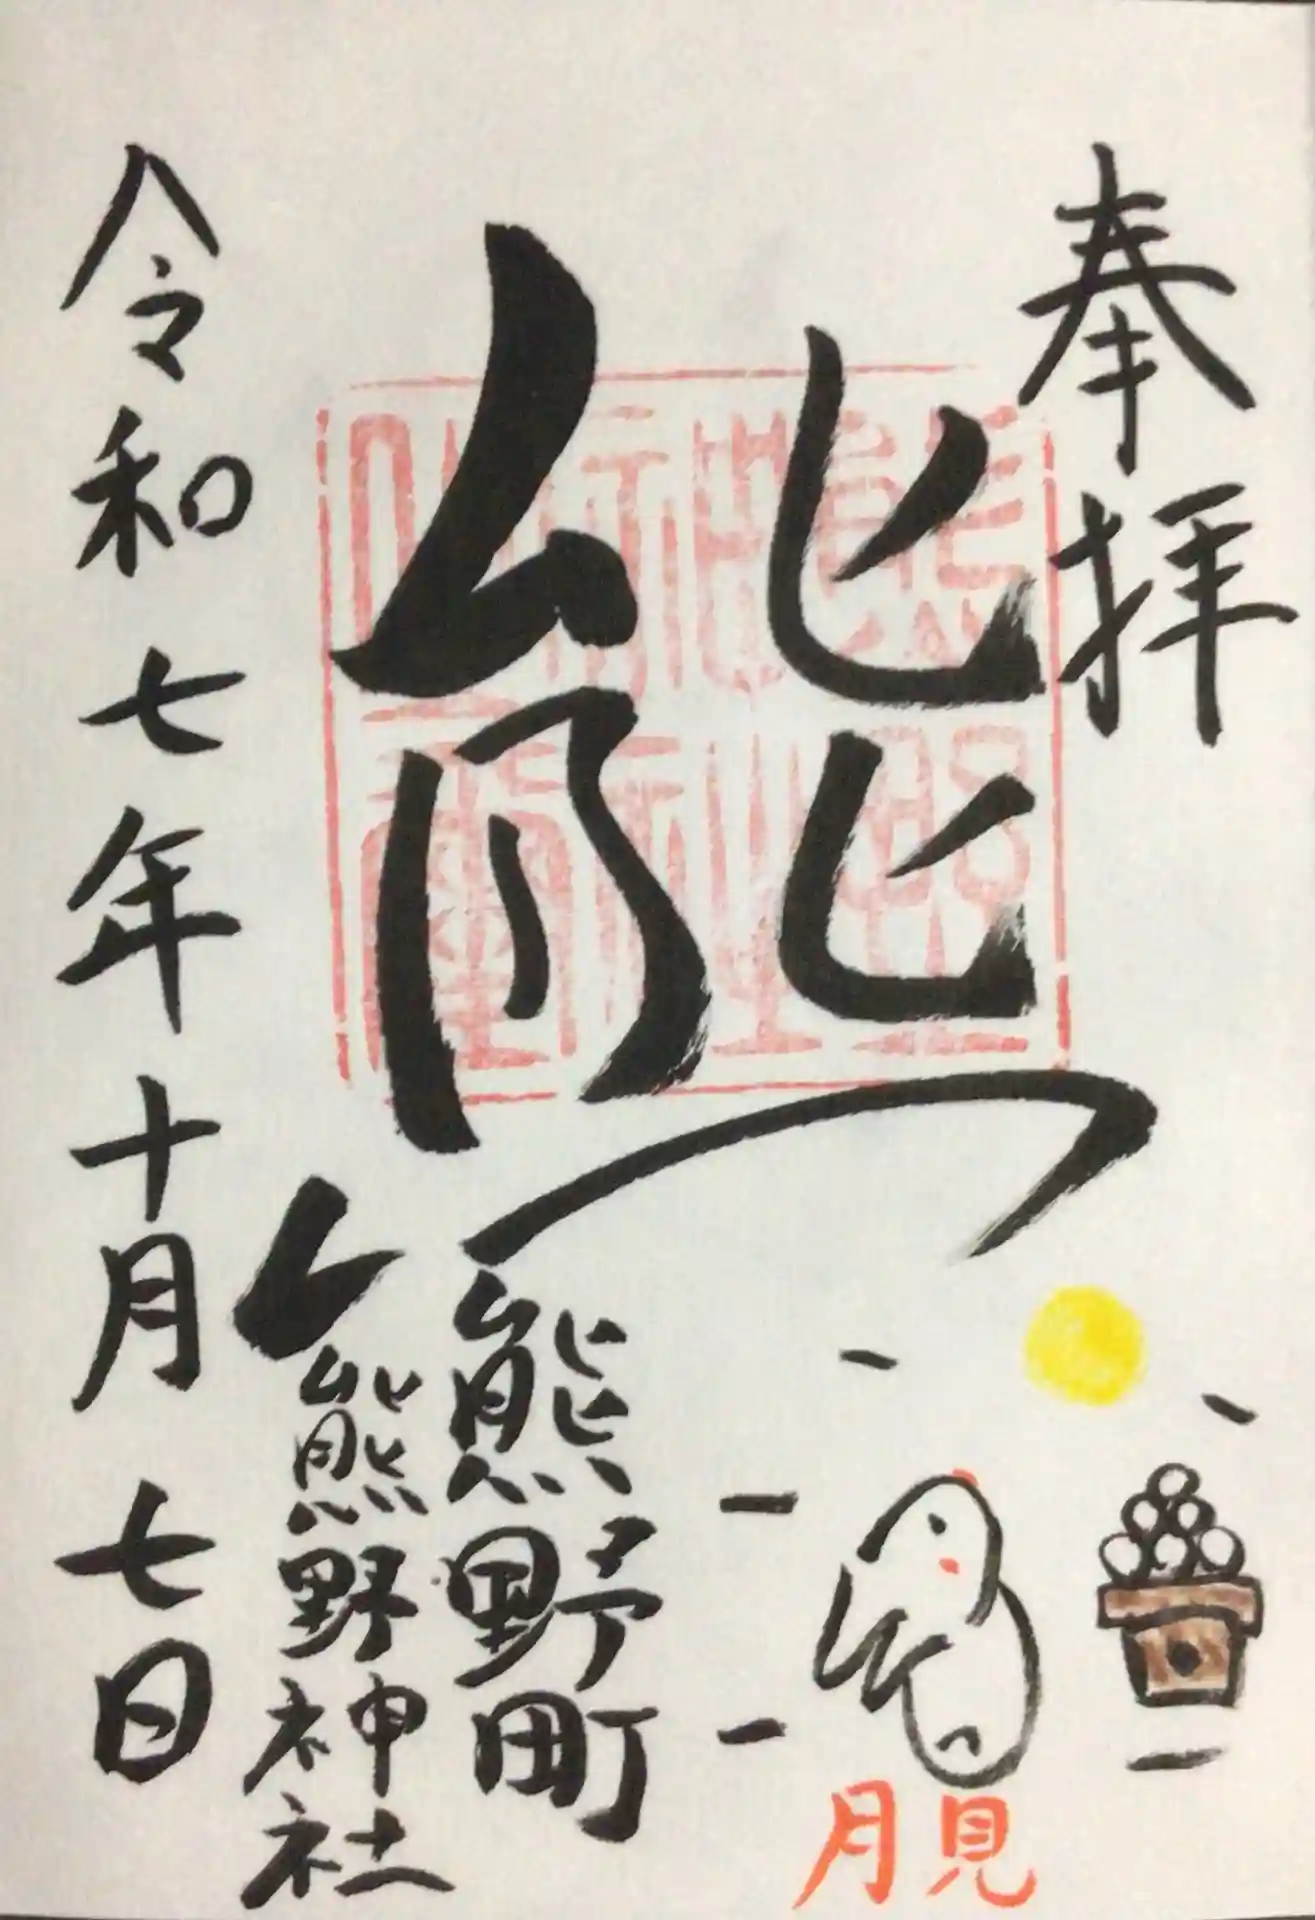 奉拝
熊
熊野町
熊野神社
令和七年十月七日
月見